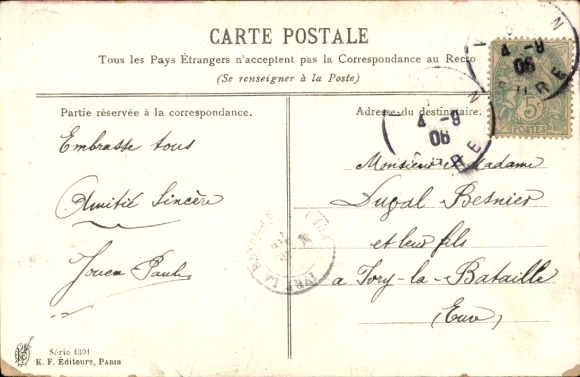 CARTE POSTALE
Tous les Pays Étrangers n'acceptent pas la Correspondance au Recto
(Se renseigner à la Poste)
Partie réservée à la correspondance.
Embrasse tous
Amitié Sincère
Paul
Série 1301
K. F. Éditeurs, PARIS
Adresse du destinataire.
Monsieur et Madame
Dugal Besnier
et leur fils
a Ivry-la-Bataille
(Eure)
4 -9
06
EURE
4 -9
06
5c
POSTES